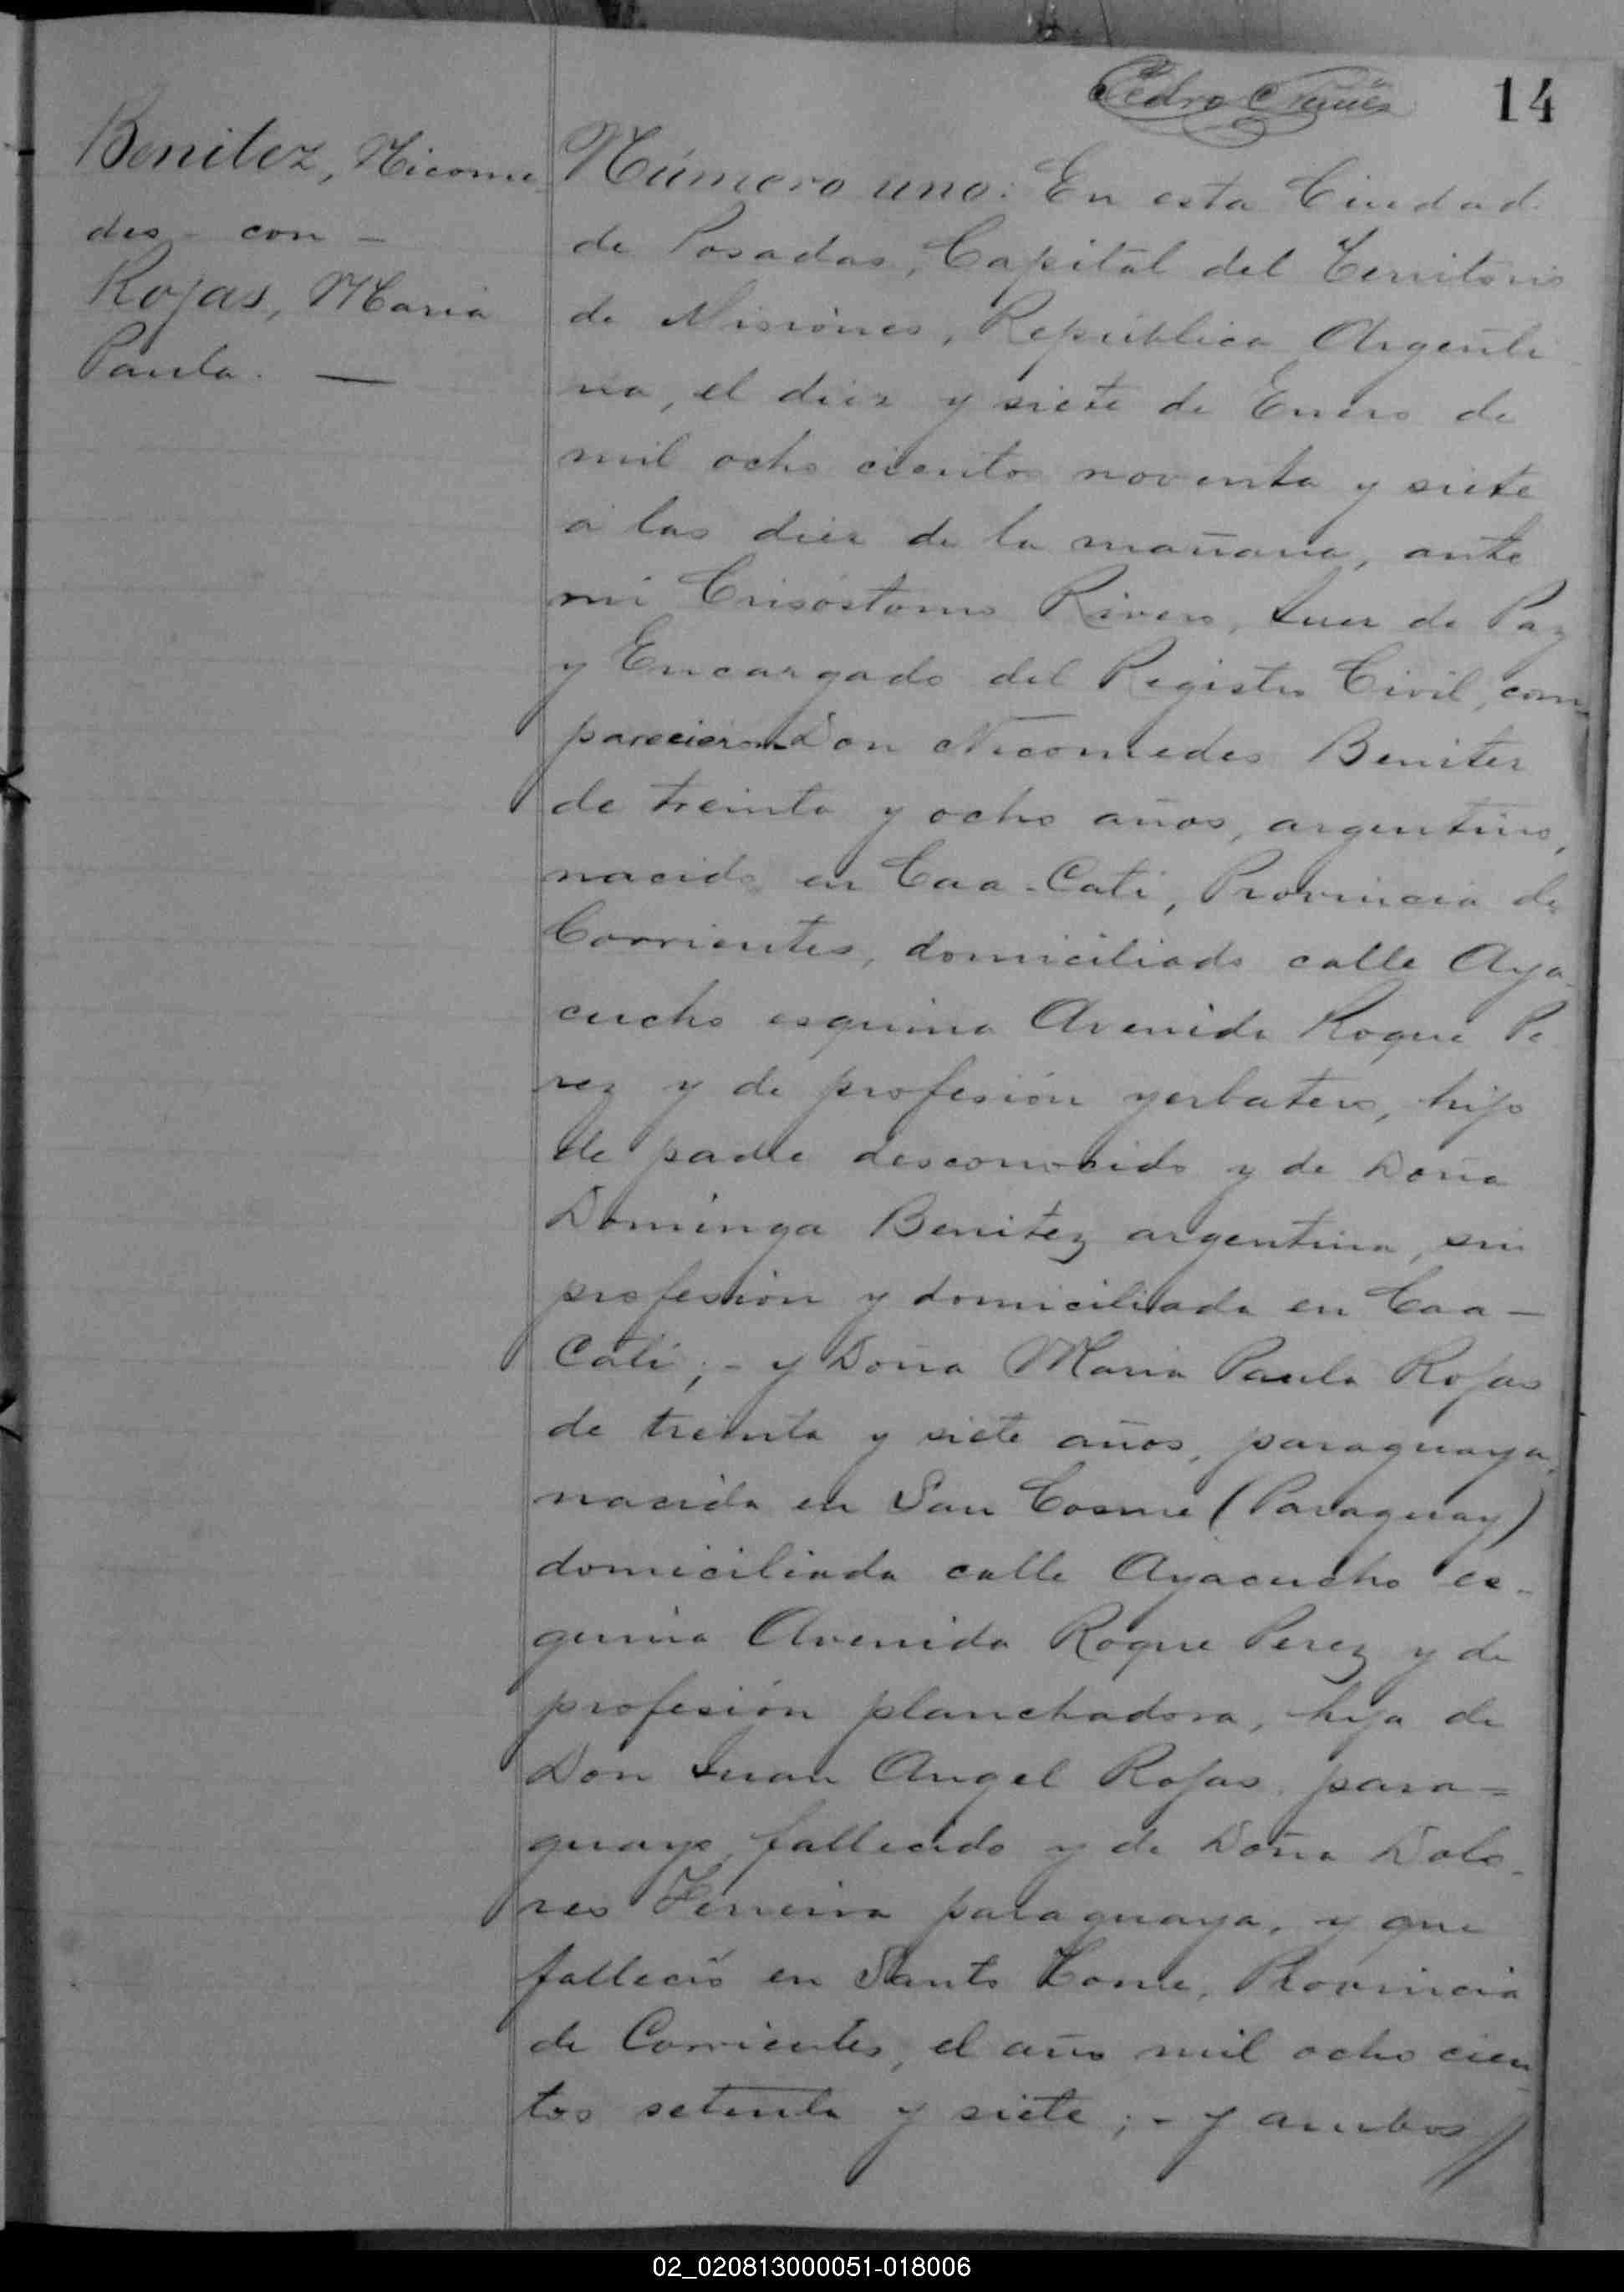 Pedro Nuñez
14
Benitez, Nicome
des - con -
Rojas, Maria
Paula. —
Número uno: En esta Ciudad
de Posadas, Capital del Territorio
de Misiónes, República Argenti
na, el diez y siete de Enero de
mil ocho cientos noventa y siete
a las diez de la mañana, ante
mi Crisóstomo Rivero, Juez de Paz
y Encargado del Registro Civil, com
parecieron Don Nicomedes Benitez
de treinta y ocho años, argentino,
nacido en Caa-Cati, Provincia de
Corrientes, domiciliado calle Aya
cucho esquina Avenida Roque Pe
rez y de profesión yerbatero, hijo
de padre desconocido y de Doña
Dominga Benitez argentina, sin
profesión y domiciliada en Caa—
Cati; - y Doña Maria Paula Rojas
de treinta y siete años, paraguaya,
nacida en San Cosme (Paraguay)
domiciliada calle Ayacucho es-
quina Avenida Roque Perez y de
profesión planchadora, hija de
Don Juan Angel Rojas, para=
guayo, fallecido y de Doña Dolo-
res Ferreira paraguaya, y que
falleció en Santo Tome, Provincia
de Corrientes, el año mil ocho cien
tos setenta y siete; - y ambos //
02_020813000051-018006